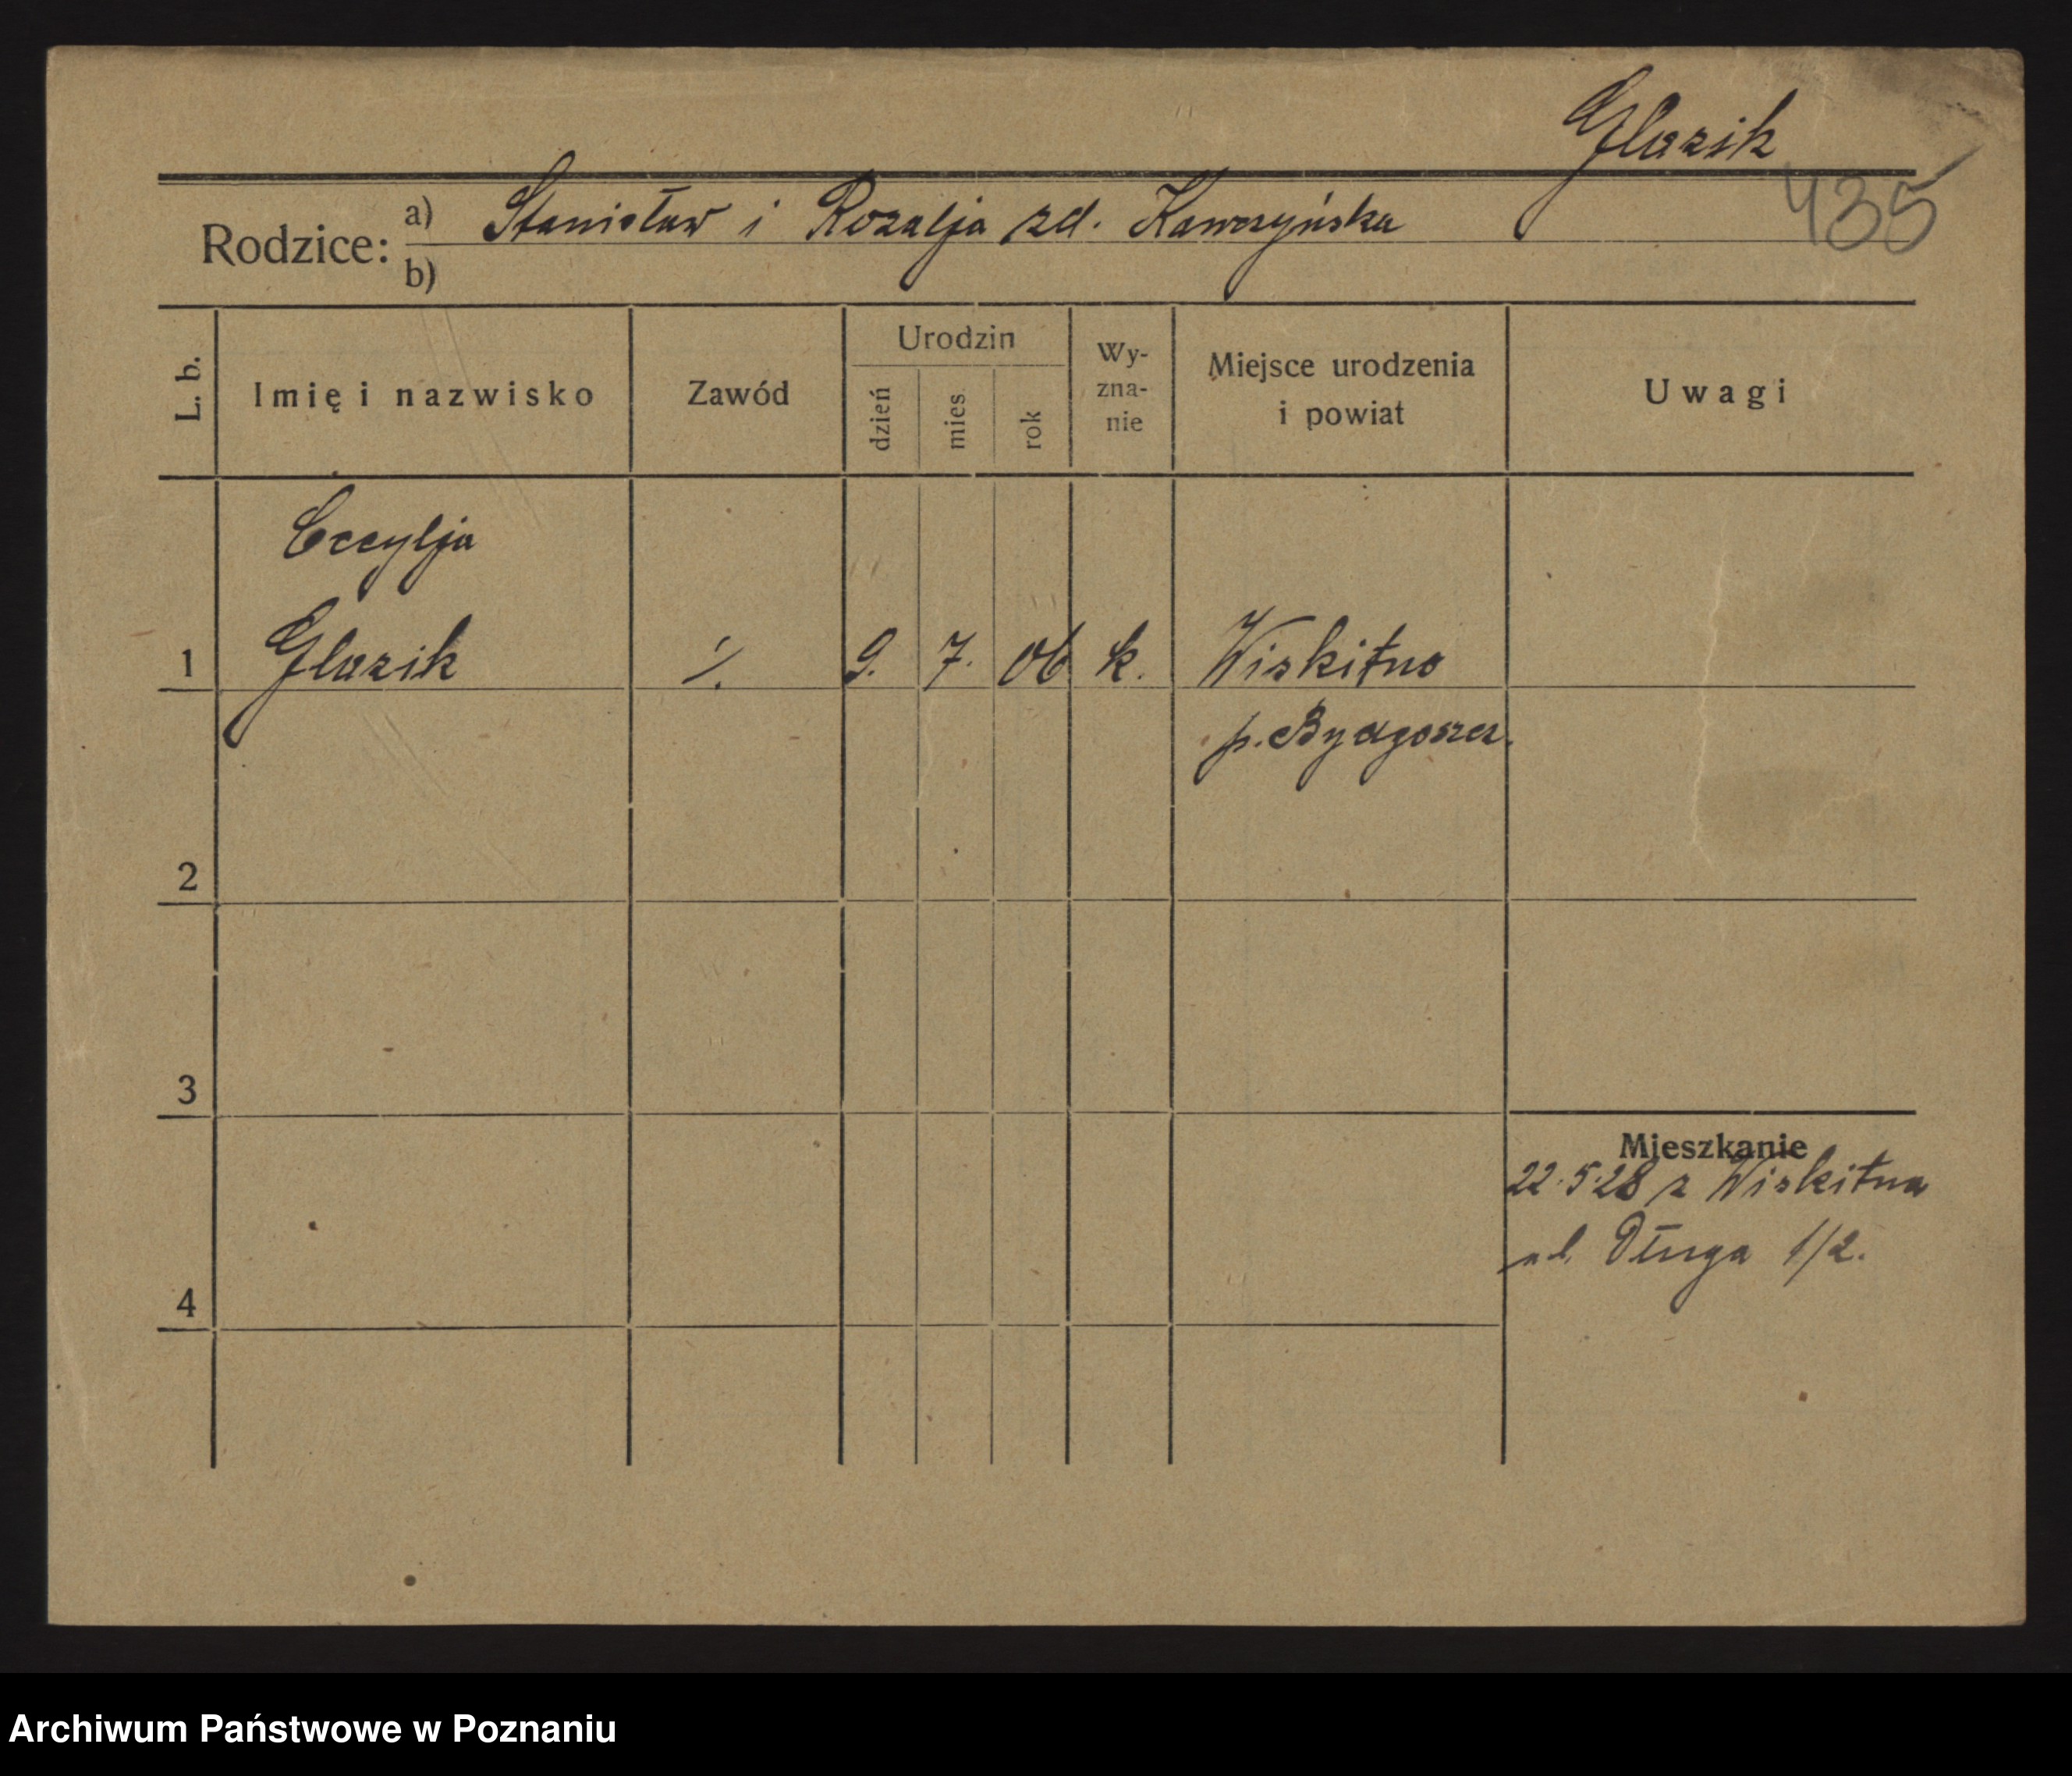 Glazik
435
Rodzice: a) Stanisław i Rozalja zd. Kawczyńska
b)
L. b.
Imię i nazwisko
Zawód
Urodzin
dzień
mies
rok
Wy-
zna-
nie
Miejsce urodzenia
i powiat
Uwagi
Cecylja
1 Glazik ·/. 9. 7. 06 k. Wiskitno
p. Bydgoszcz.
2
3
Mieszkanie
22.5.28 z Wiskitna
ul. Długa 1/2.
4
Archiwum Państwowe w Poznaniu